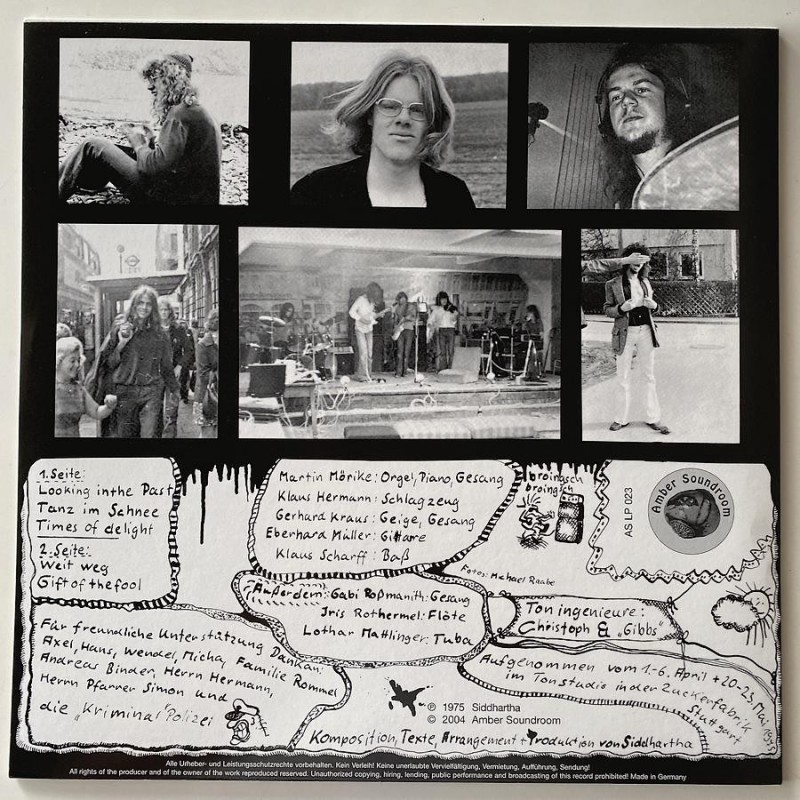 1. Seite:
Looking in the Past
Tanz im Schnee
Times of delight
2. Seite:
Weit weg
Gift of the fool
Martin Mörike: Orgel, Piano, Gesang
Klaus Hermann: Schlagzeug
Gerhard Kraus: Geige, Gesang
Eberhard Müller: Gitarre
Klaus Scharff: Baß
broingsch
broingsch
Fotos: Michael Raabe
AS LP 023
Amber Soundroom
Außerdem: Gabi Roßmanith: Gesang
Iris Rothermel: Flöte
Lothar Mattlinger: Tuba
Toningenieure:
Christoph & „Gibbs“
Für freundliche Unterstützung Dankan:
Axel, Hans, Wendel, Micha, Familie Rommel
Andreas Binder, Herrn Hermann,
Herrn Pfarrer Simon und
die „Kriminal“Polizei
Aufgenommen vom 1.-6. April + 20-23. Mai 1975
im Tonstudio in der Zuckerfabrik
Stuttgart
℗ 1975 Siddhartha
© 2004 Amber Soundroom
Komposition, Texte, Arrangement + Produktion von Siddhartha
Alle Urheber- und Leistungsschutzrechte vorbehalten. Kein Verleih! Keine unerlaubte Vervielfältigung, Vermietung, Aufführung, Sendung!
All rights of the producer and of the owner of the work reproduced reserved. Unauthorized copying, hiring, lending, public performance and broadcasting of this record prohibited! Made in Germany